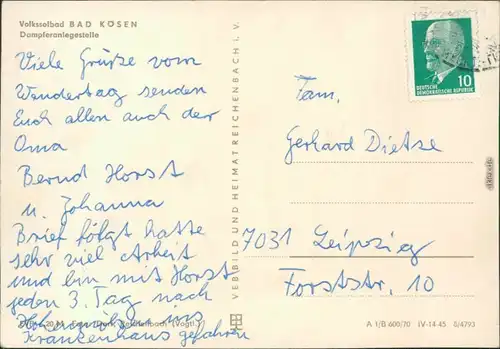 Volkssolbad BAD KÖSEN
Dampferanlegestelle
Viele Grüße vom
Wandertag senden
Euch allen auch der
Oma
Bernd Horst
u. Johanna
Brief folgt hatte
sehr viel Arbeit
und bin mit Horst
jeden 3. Tag nach
ins
Krankenhaus gefahren
VEB BILD UND HEIMAT REICHENBACH I. V.
10
DEUTSCHE
DEMOKRATISCHE REPUBLIK
Fam.
Gerhard Dietze
7031 Leipzig
Forststr. 10
A 1/B 600/70 IV-14-45 5/4793